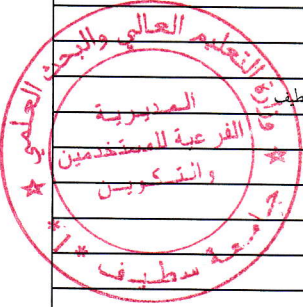 وزارة التعليم العالي والبحث العلمي
المديرية
الفرعية للمستخدمين
والتكوين
جامعة سطيف *1*
طيف